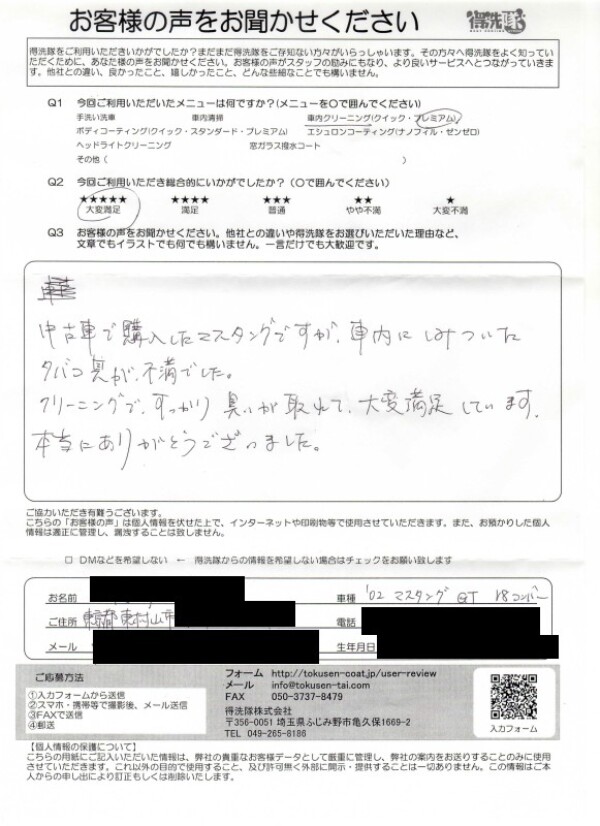 お客様の声をお聞かせください
得洗隊
得洗隊をご利用いただきいかがでしたか？まだまだ得洗隊をご存知ない方々がいらっしゃいます。その方々へ得洗隊をよく知って
いただくために、あなた様の声をお聞かせください。お客様の声がスタッフの励みにもなり、より良いサービスへとつながっていきま
す。他社との違い、良かったこと、嬉しかったこと、どんな些細なことでも構いません。
Q1 今回ご利用いただいたメニューは何ですか？(メニューを〇で囲んでください)
手洗い洗車 車内清掃 車内クリーニング(クイック・プレミアム)
ボディコーティング(クイック・スタンダード・プレミアム) エシュロンコーティング(ナノフィル・ゼンゼロ)
ヘッドライトクリーニング 窓ガラス撥水コート
その他( )
Q2 今回ご利用いただき総合的にいかがでしたか？(〇で囲んでください)
★★★★★ ★★★★ ★★★ ★★ ★
大変満足 満足 普通 やや不満 大変不満
Q3 お客様の声をお聞かせください。他社との違いや得洗隊をお選びいただいた理由など、
文章でもイラストでも何でも構いません。一言だけでも大歓迎です。
中古車で購入したマスタングですが、車内にしみついた
タバコ臭が、不満でした。
クリーニングで、すっかり臭いが取れて、大変満足しています。
本当にありがとうございました。
ご協力いただき有難うございます。
こちらの「お客様の声」は個人情報を伏せた上で、インターネットや印刷物等で使用させていただきます。また、お預かりした個人
情報は適正に管理し、漏洩することは致しません。
□ DMなどを希望しない ← 得洗隊からの情報を希望しない場合はチェックをお願い致します
お名前 車種 '02 マスタング GT V8コンバー
ご住所 東京都東村山市 電話
メール 生年月日
ご応募方法
①入力フォームから送信
②スマホ・携帯等で撮影後、メール送信
③FAXで送信
④郵送
フォーム http://tokusen-coat.jp/user-review
メール info@tokusen-tai.com
FAX 050-3737-8479
得洗隊株式会社
〒356-0051 埼玉県ふじみ野市亀久保1669-2
TEL 049-265-8186
入力フォーム
【個人情報の保護について】
こちらの用紙にご記入いただいた情報は、弊社の貴重なお客様データとして厳重に管理し、弊社の案内をお送りすることのみに使用
させていただきます。これ以外の目的で使用すること、及び許可無く外部に開示・提供することは一切ありません。この情報はご本
人からの申し出により訂正もしくは削除いたします。